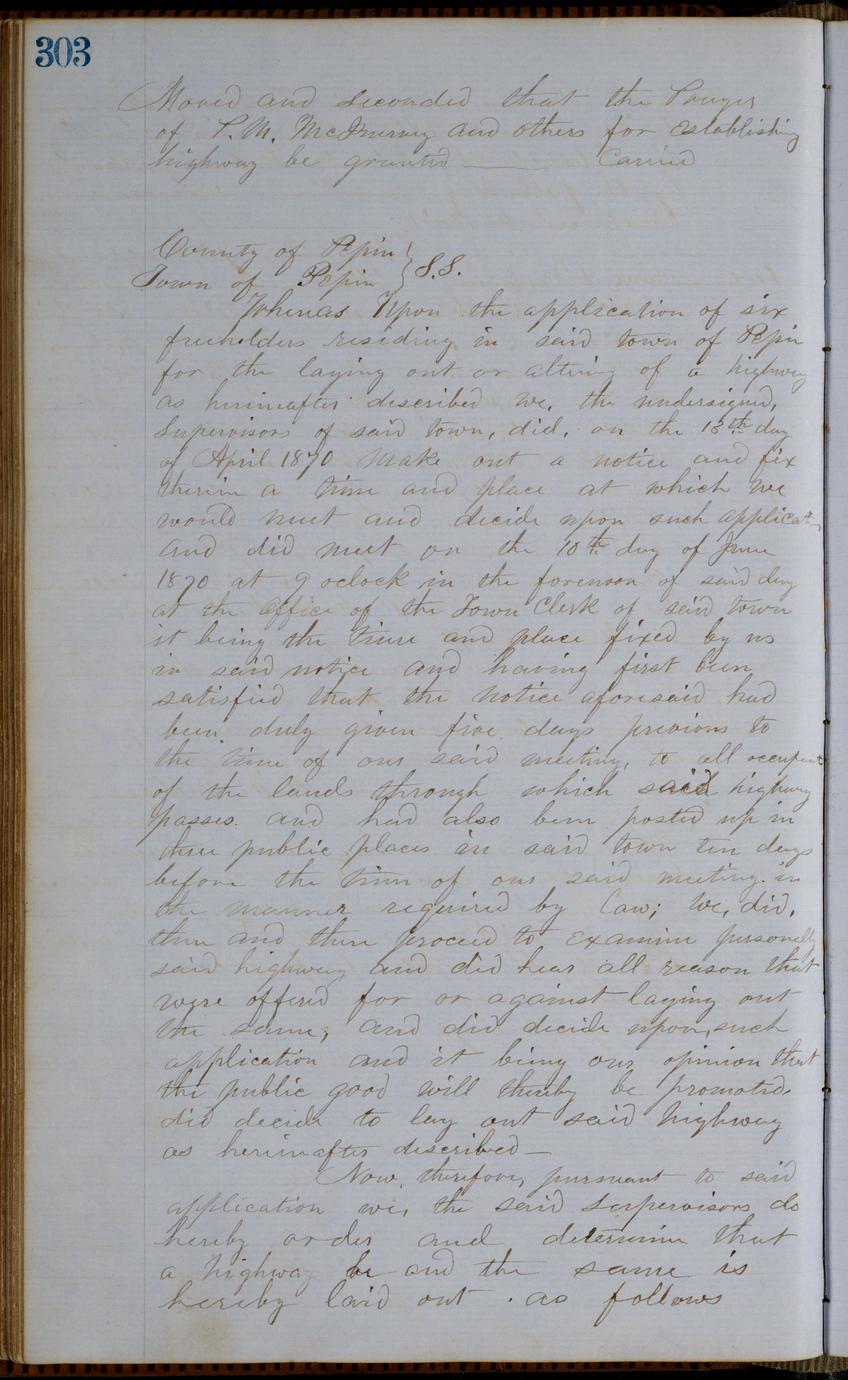 303
Moved and Seconded that the Prayer
of P. M. and others for Establishing
highway be granted ——— Carried
County of Pepin } S.S.
Town of Pepin
Whereas Upon the application of six
freeholders residing in said town of Pepin
for the laying out or altering of a highway
as hereinafter described We, the undersigned,
Supervisors of said town, did, on the 13th day
of April 1870 Make out a notice and fix
therein a time and place at which we
would meet and decide upon such applicat
and did meet on the 10th day of June
1870 at 9 oclock in the forenoon of said day
at the office of the Town Clerk of said town
it being the time and place fixed by us
in said notice and having first been
satisfied that the notice aforesaid had
been duly given five days previous to
the time of our said meeting, to all occupant
of the lands through which said highway
passes. and had also been posted up in
three public places in said town ten days
before the time of our said meeting. in
the manner required by Law; We, did,
then and there proceed to Examine personally
said highway and did hear all reason that
were offered for or against laying out
the same; and did decide upon such
application and it being our opinion that
the public good will thereby be promoted
did decide to lay out said highway
as hereinafter described —
Now, therefore, pursuant to said
application we, the said Supervisors do
hereby order and determine that
a highway be and the same is
hereby laid out . as follows